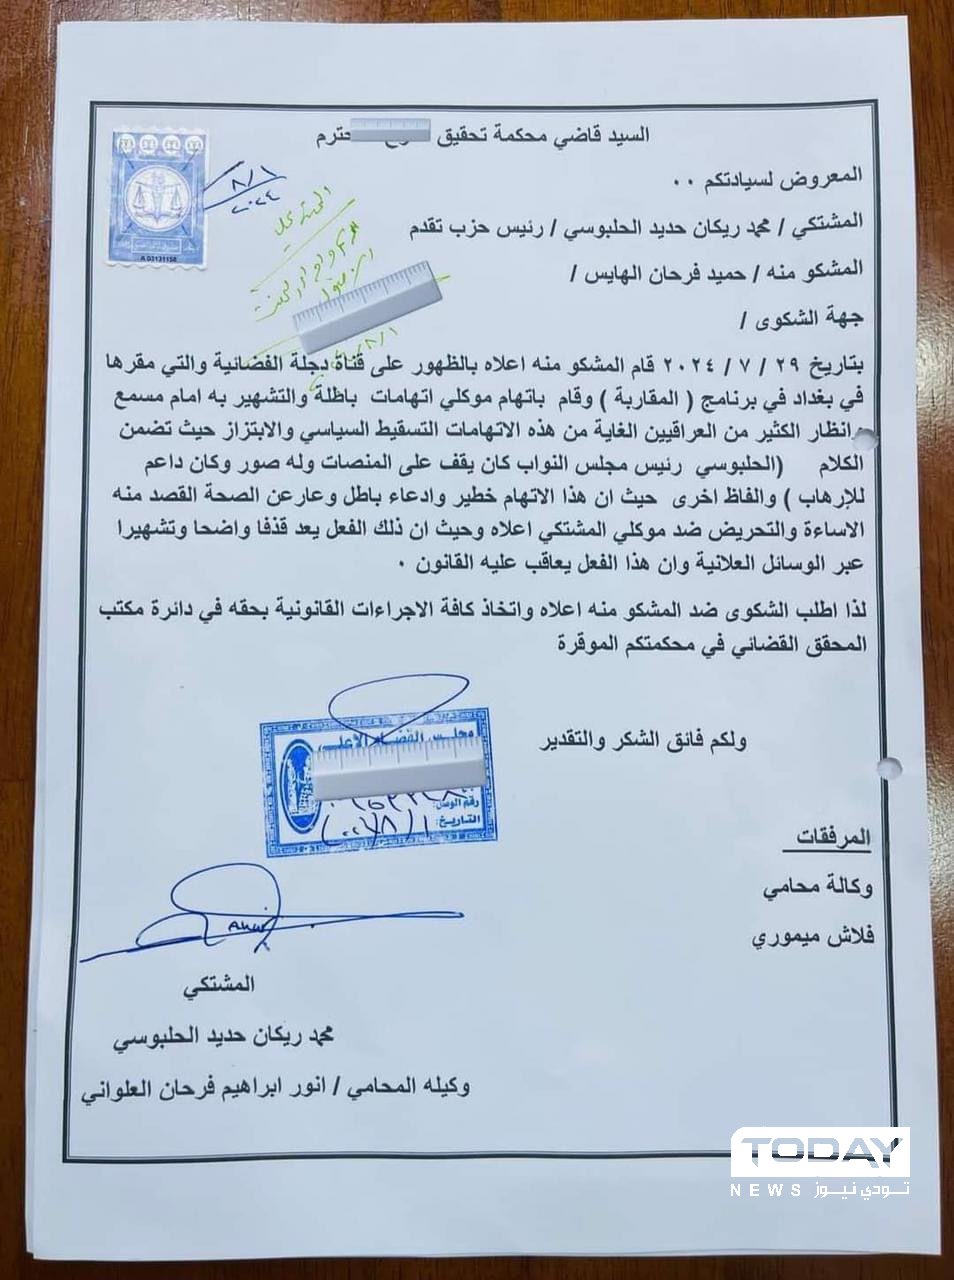 السيد قاضي محكمة تحقيق
المعروض لسيادتكم ..
المشتكي / محمد ريكان حديد الحلبوسي / رئيس حزب تقدم
المشكو منه / حميد فرحان الهايس /
جهة الشكوى /
بتاريخ ٢٩ / ٧ / ٢٠٢٤ قام المشكو منه اعلاه بالظهور على قناة دجلة الفضائية والتي مقرها
في بغداد في برنامج ( المقاربة ) وقام باتهام موكلي اتهامات باظلة والتشهير به امام مسمع
وانظار الكثير من العراقيين الغاية من هذه الاتهامات التسقيط السياسي والابتزاز حيث تضمن
الكلام (الحلبوسي رئيس مجلس النواب كان يقف على المنصات وله صور وكان داعم
للإرهاب ) والفاظ اخرى حيث ان هذا الاتهام خطير وادعاء باطل وعارعن الصحة القصد منه
الاساءة والتحريض ضد موكلي المشتكي اعلاه وحيث ان ذلك الفعل يعد قذفا واضحا وتشهيرا
عبر الوسائل العلانية وان هذا الفعل يعاقب عليه القانون .
لذا اطلب الشكوى ضد المشكو منه اعلاه واتخاذ كافة الاجراءات القانونية بحقه في دائرة مكتب
المحقق القضائي في محكمتكم الموقرة
ولكم فائق الشكر والتقدير
مجلس القضاء الاعلى
رقم الوصل:
التاريخ:
المرفقات
وكالة محامي
فلاش ميموري
المشتكي
محمد ريكان حديد الحلبوسي
وكيله المحامي / انور ابراهيم فرحان العلواني
A 03131158
٨/١
٢٠٢٤
TODAY
NEWS تودي نيوز